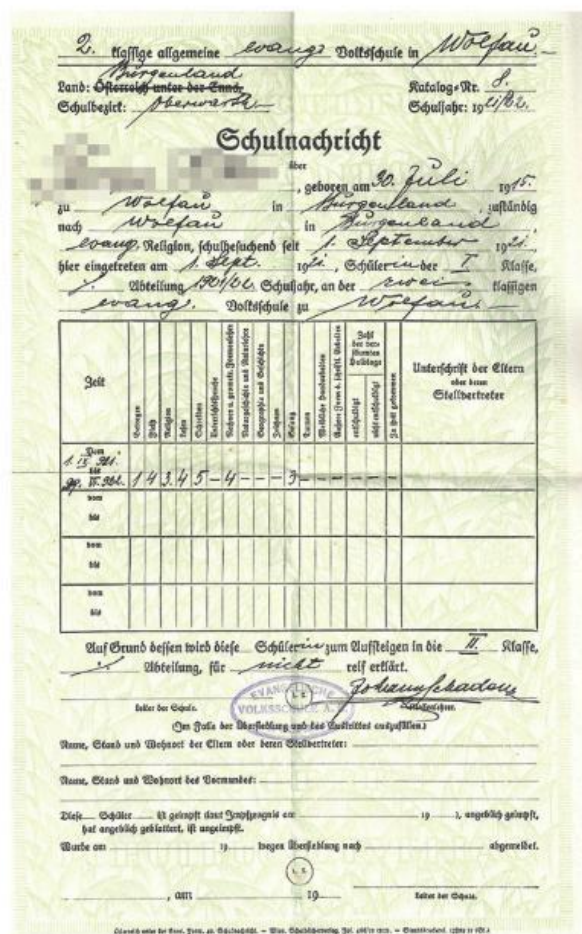 2. klassige allgemeine evang. Volksschule in Wolfau.
Burgenland
Land: Österreich unter der Enns. Katalog-Nr. 8.
Schulbezirk: Oberwarth Schuljahr: 1921/22.
Schulnachricht
über
, geboren am 30. Juli 1915.
zu Wolfau in Burgenland, zuständig
nach Wolfau in Burgenland,
evang. Religion, schulbesuchend seit 1. September 1921.
hier eingetreten am 1. Sept. 1921, Schülerin der I. Klasse,
Abteilung 1921/22 Schuljahr, an der zwei klassigen
evang. Volksschule zu Wolfau.
Zeit
Betragen
Fleiß
Religion
Lesen
Schreiben
Unterrichtssprache
Rechnen u. geometr. Formenlehre
Naturgeschichte und Naturlehre
Geographie und Geschichte
Zeichnen
Gesang
Turnen
Weibliche Handarbeiten
Äußere Form d. schriftl. Arbeiten
Zahl der versäumten Halbtage
entschuldigt
nicht entschuldigt
Zu spät gekommen
Unterschrift der Eltern
oder deren
Stellvertreter
Vom
1. IX. 921.
bis
II. 922. 1 4 3. 4 5 – 4 – – – 3 – – – – – –
vom
bis
vom
bis
vom
bis
Auf Grund dessen wird diese Schülerin zum Aufsteigen in die II. Klasse,
Abteilung, für nicht reif erklärt.
EVANGELISCHE
VOLKSSCHULE A.
L. S.
Leiter der Schule. Klassenlehrer.
(Im Falle der Übersiedlung und des Austrittes auszufüllen.)
Name, Stand und Wohnort der Eltern oder deren Stellvertreter:
Name, Stand und Wohnort des Vormundes:
Diese Schüler ist geimpft laut Impfzeugnis am 19 ), angeblich geimpft,
hat angeblich geblattert, ist ungeimpft.
Wurde am 19 wegen Übersiedlung nach abgemeldet.
L. S.
, am 19 Leiter der Schule.